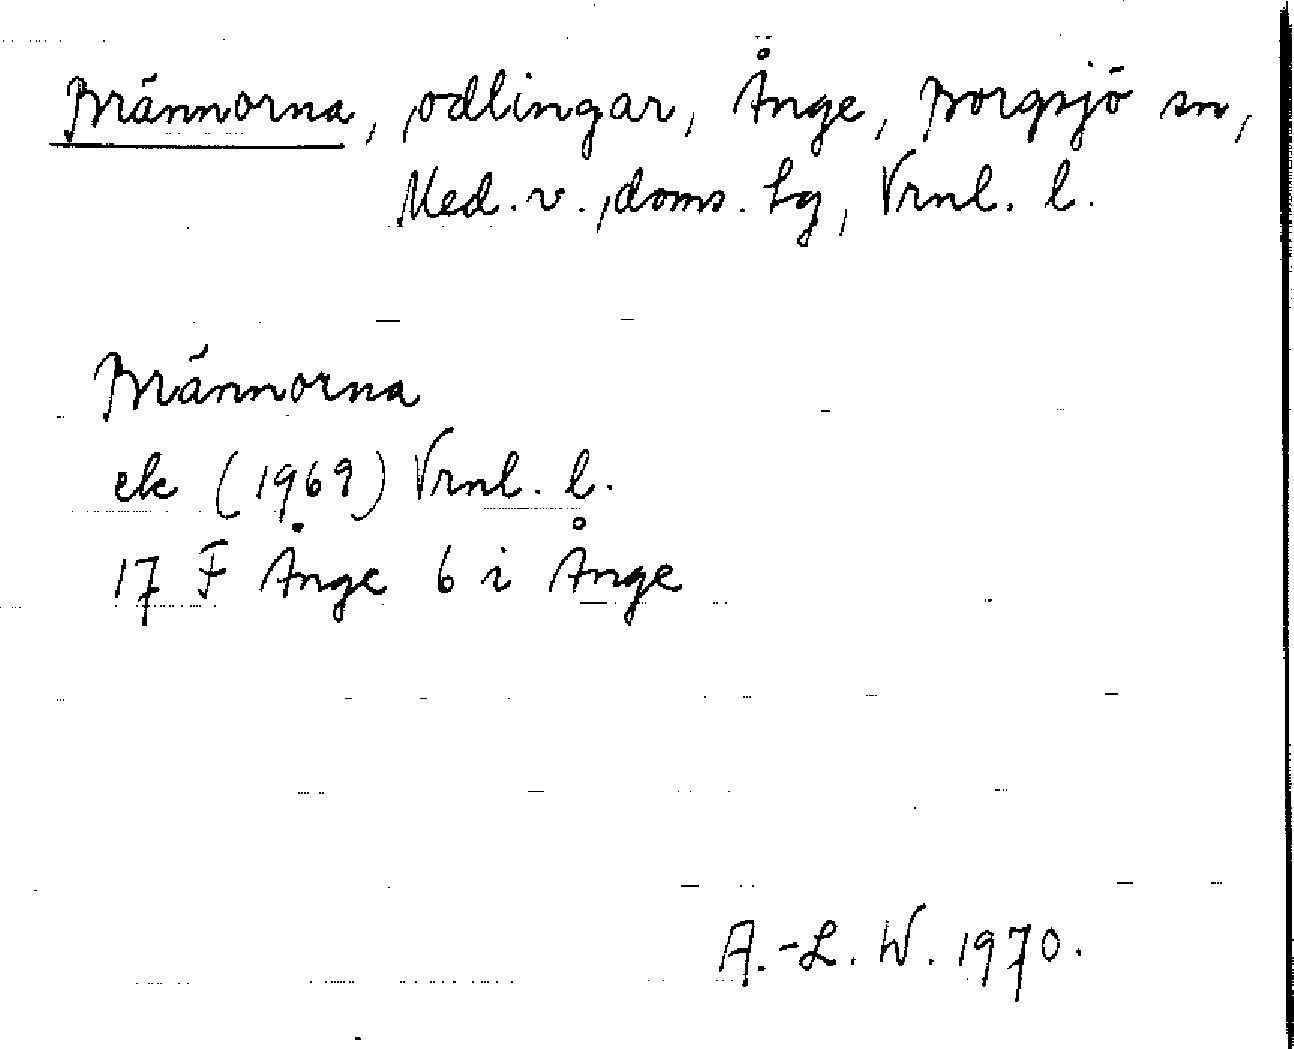 Brännorna, odlingar, Ånge, Borgsjö sn,
Med. v., doms. lg, Vrnl. l.
Brännorna
ek (1969) Vrnl. l.
17 F Ånge 6 i Ånge
A.-L. W. 1970.